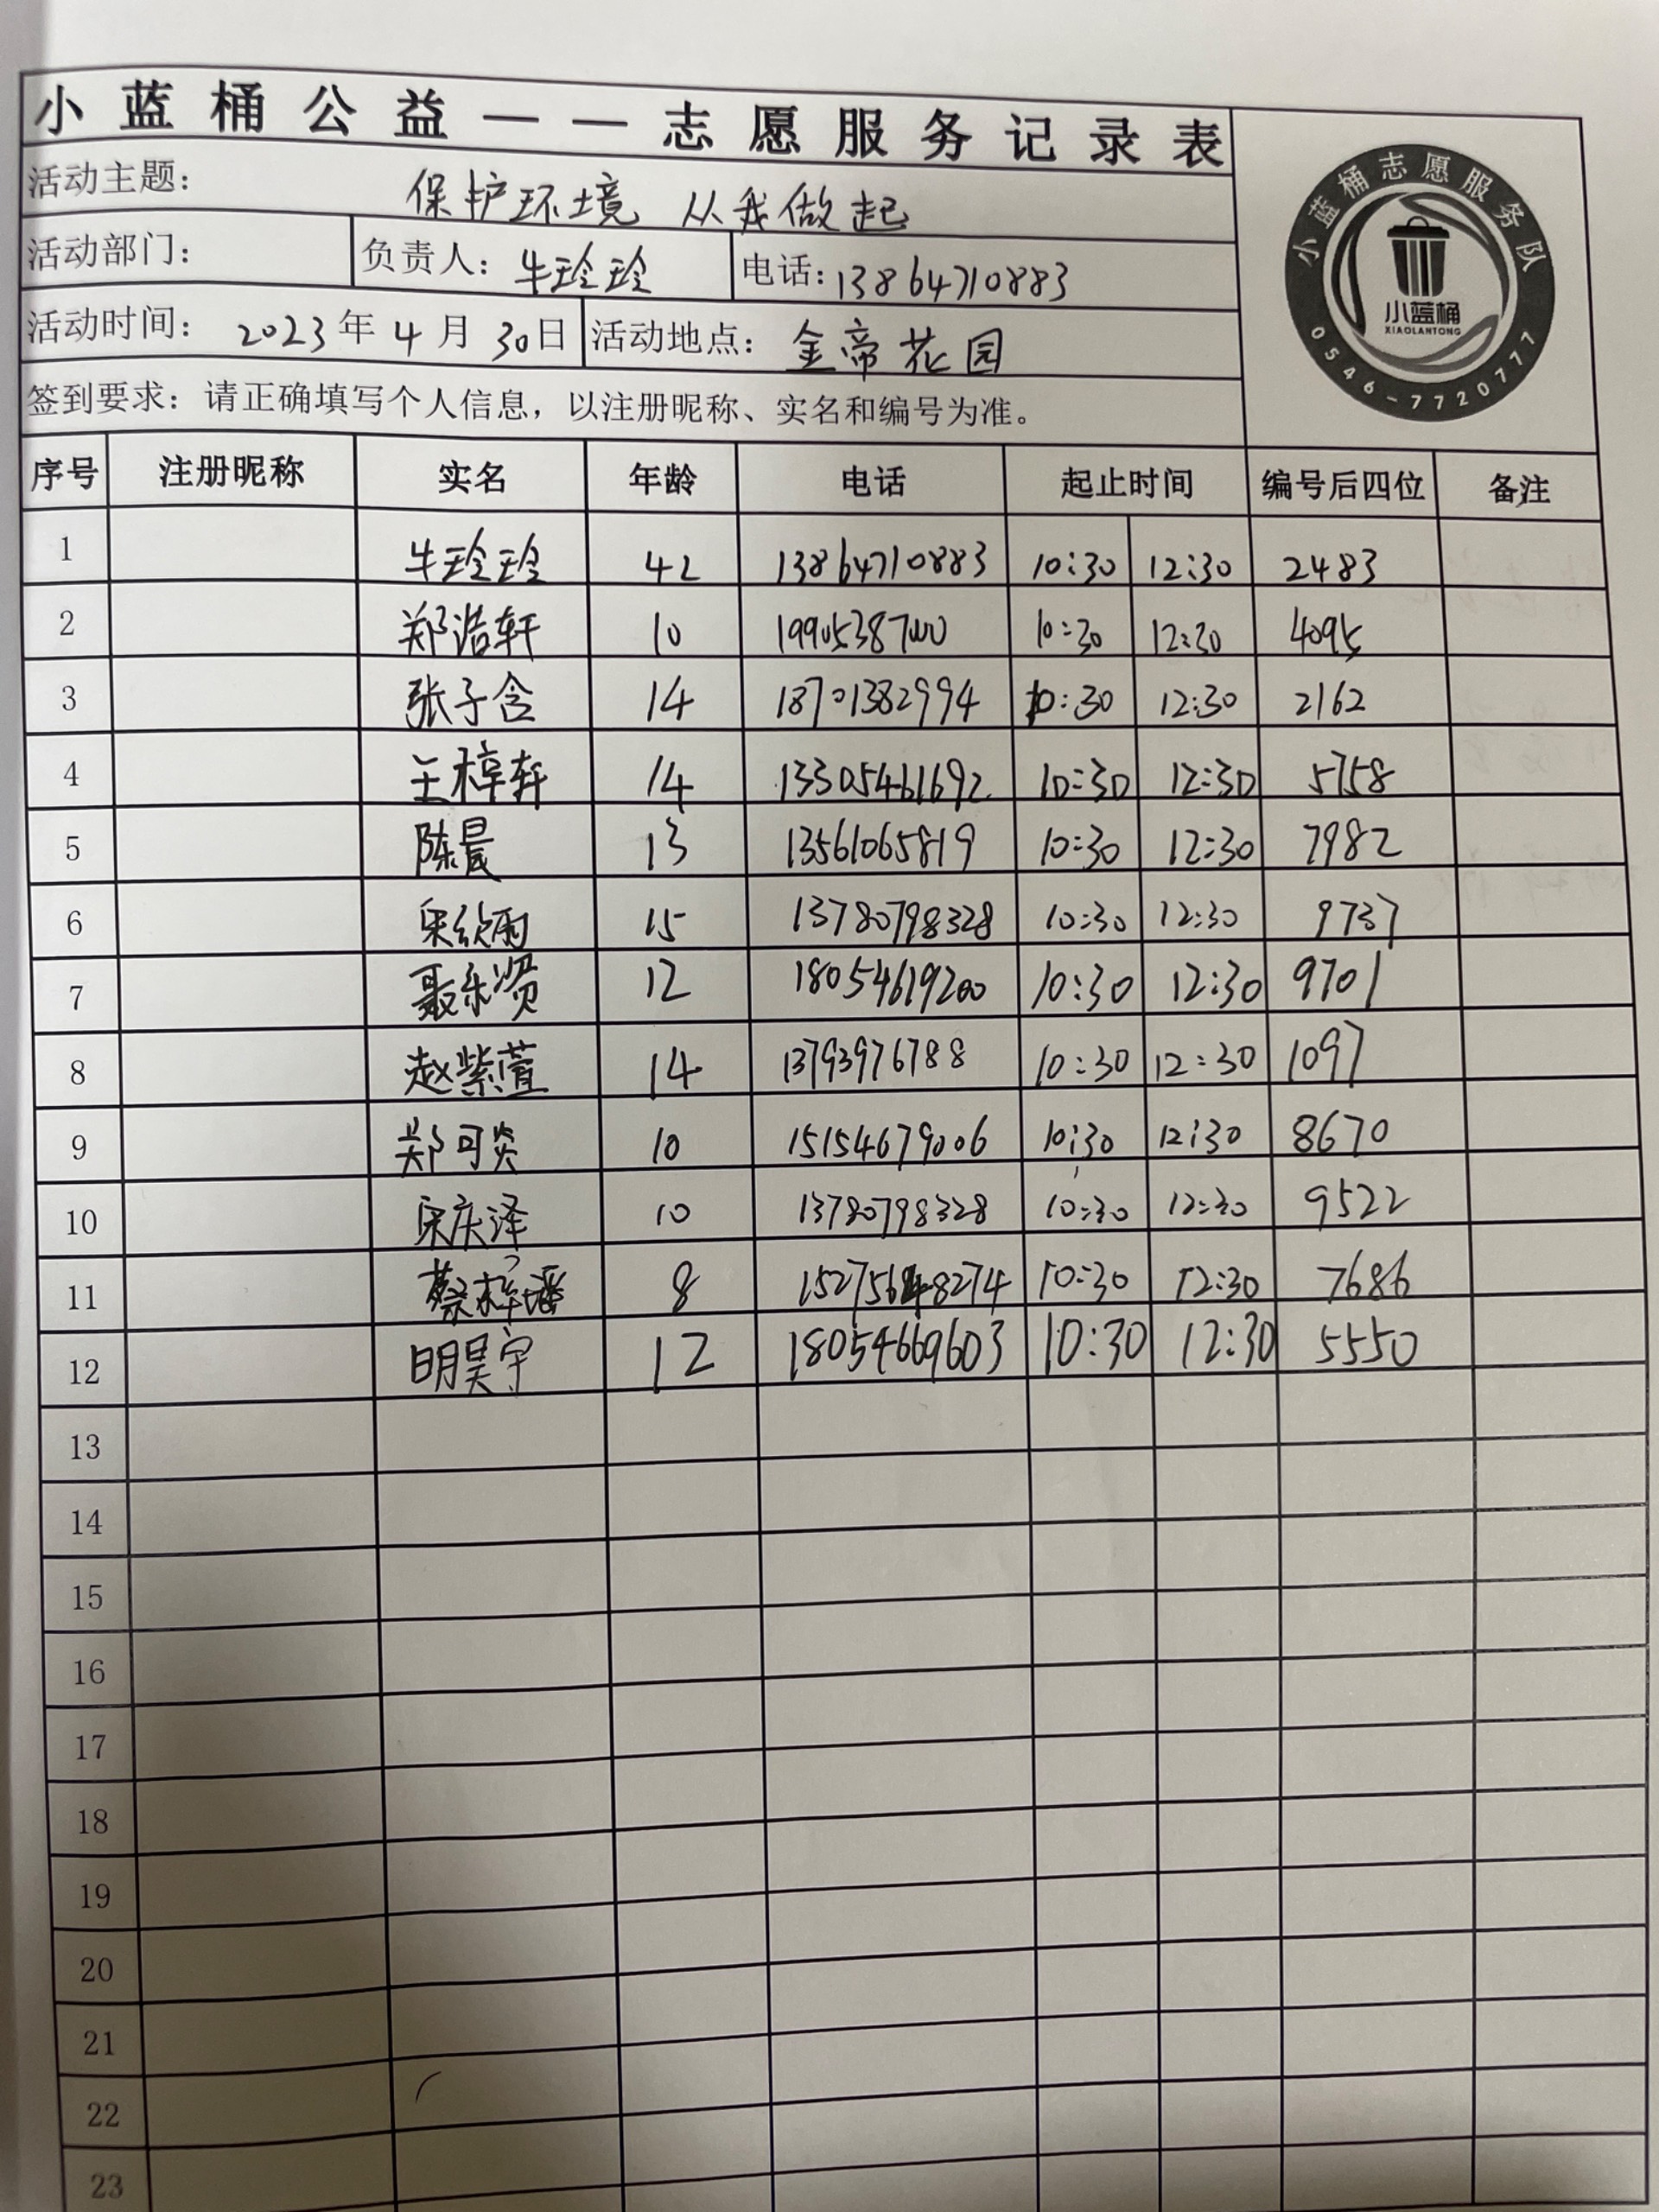 小蓝桶公益——志愿服务记录表
活动主题： 保护环境 从我做起
活动部门： 负责人：牛玲玲 电话：13864710883
活动时间： 2023年4月30日 活动地点： 金帝花园
签到要求：请正确填写个人信息，以注册昵称、实名和编号为准。
小蓝桶志愿服务队
小蓝桶
XIAOLANTONG
0546-7720777
序号 注册昵称 实名 年龄 电话 起止时间 编号后四位 备注
1 牛玲玲 42 13864710883 10:30 12:30 2483
2 郑浩轩 10 10:30 12:30 4095
3 张子含 14 18701382994 10:30 12:30 2162
4 王梓轩 14 13305461692 10:30 12:30 5758
5 陈晨 13 13561065819 10:30 12:30 7982
6 15 13780798328 10:30 12:30 9737
7 聂乐贤 12 18054619200 10:30 12:30 9701
8 赵紫萱 14 13793976788 10:30 12:30 1097
9 郑可炎 10 15154679006 10:30 12:30 8670
10 宋庆泽 10 13780798328 10:30 12:30 9522
11 8 10:30 12:30 7686
12 明昊宇 12 18054669603 10:30 12:30 5550
13
14
15
16
17
18
19
20
21
22
23